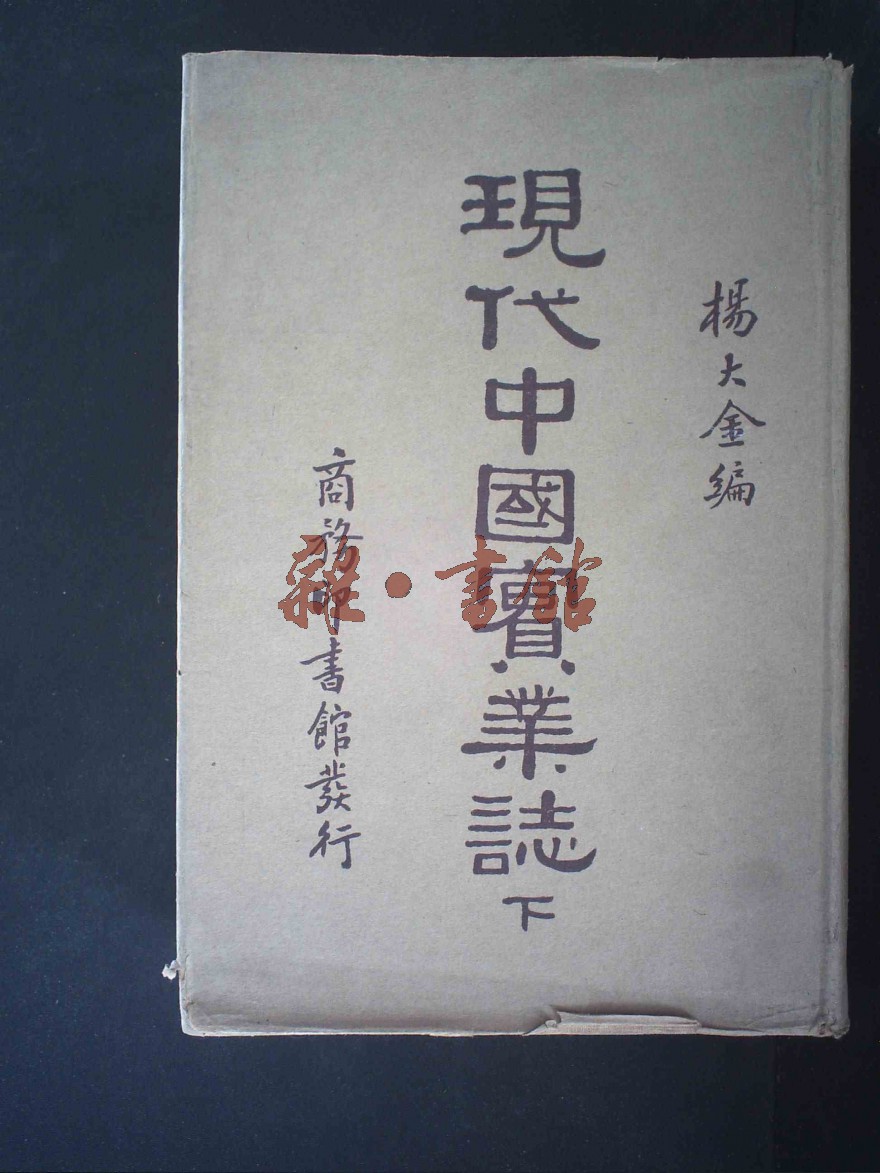 楊大金編
現代中國實業誌
下
商務印書館發行
雜·書館